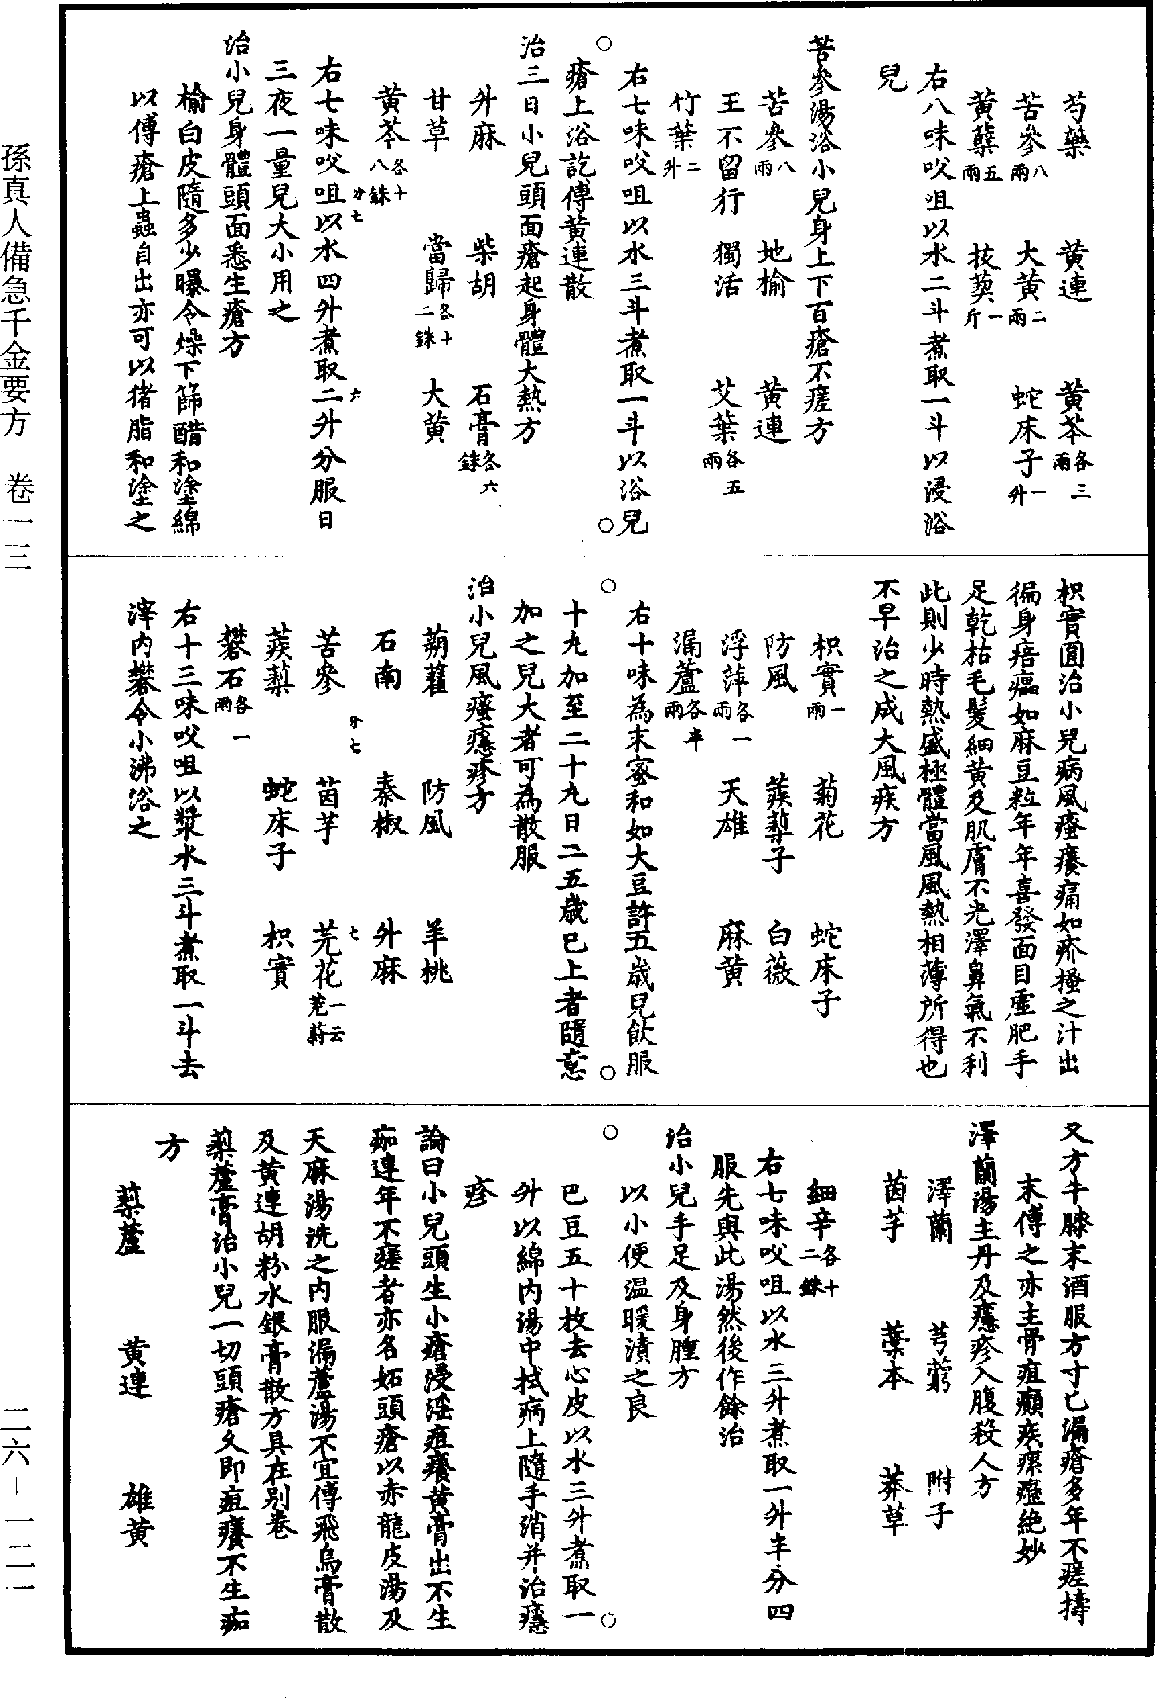 孫真人備急千金要方　卷一三
二六－一二一
芍藥　黄連　黄芩各三兩
苦參八兩　大黄二兩　蛇床子一升
黄蘗五兩　菝葜一斤
右八味㕮咀以水二斗煮取一斗以浸浴
兒
苦參湯浴小兒身上下百瘡不瘥方
苦參八兩　地榆　黄連
王不留行　獨活　艾葉各五兩
竹葉二升
右七味㕮咀以水三斗煮取一斗以浴兒
瘡上浴訖傅黄連散
治三日小兒頭面瘡起身體大熱方
升麻　柴胡　石膏各六銖
甘草　當歸各十二銖　大黄
黄芩各十八銖
右七味㕮咀以水四升煮取二升分服日
三夜一量兒大小用之
治小兒身體頭面悉生瘡方
榆白皮隨多少曝令燥下篩醋和塗綿
以傅瘡上蟲自出亦可以猪脂和塗之
枳實圓治小兒病風瘙癢痛如疥搔之汁出
徧身㾦㿔如麻豆粒年年喜發面目虛肥手
足乾枯毛髮細黄及肌膚不光澤鼻氣不利
此則少時熱盛極體當風風熱相薄所得也
不早治之成大風疾方
枳實一兩　菊花　蛇床子
防風　蒺䔧子　白薇
浮萍各一兩　天雄　麻黄
漏蘆各半兩
右十味為末蜜和如大豆許五歲兒飲服
十九加至二十九日二五歲已上者隨意
加之兒大者可為散服
治小兒風瘙癮疹方
蒴藋　防風　羊桃
石南　秦椒　升麻
苦參　茵芋　芫花一云莞蔚
蒺䔧　蛇床子　枳實
礬石各一兩
右十三味㕮咀以漿水三斗煮取一斗去
滓内礬令小沸浴之
又方牛膝末酒服方寸匕漏瘡多年不瘥擣
末傅之亦主骨疽癲疾瘰癧絶妙
澤蘭湯主丹及癮疹入腹殺人方
澤蘭　芎藭　附子
茵芋　藁本　莽草
細辛各十二銖
右七味㕮咀以水三升煮取一升半分四
服先與此湯然後作餘治
治小兒手足及身腫方
以小便温暖漬之良
巴豆五十枚去心皮以水三升煮取一
升以綿内湯中拭病上隨手消并治癮
疹
論曰小兒頭生小瘡浸淫疽癢黄膏出不生
痂連年不瘥者亦名妬頭瘡以赤龍皮湯及
天麻湯洗之内服漏蘆湯不宜傅飛烏膏散
及黄連胡粉水銀膏散方具在别卷
䔧蘆膏治小兒一切頭瘡久即疽癢不生痂
方
䔧蘆　黄連　雄黄